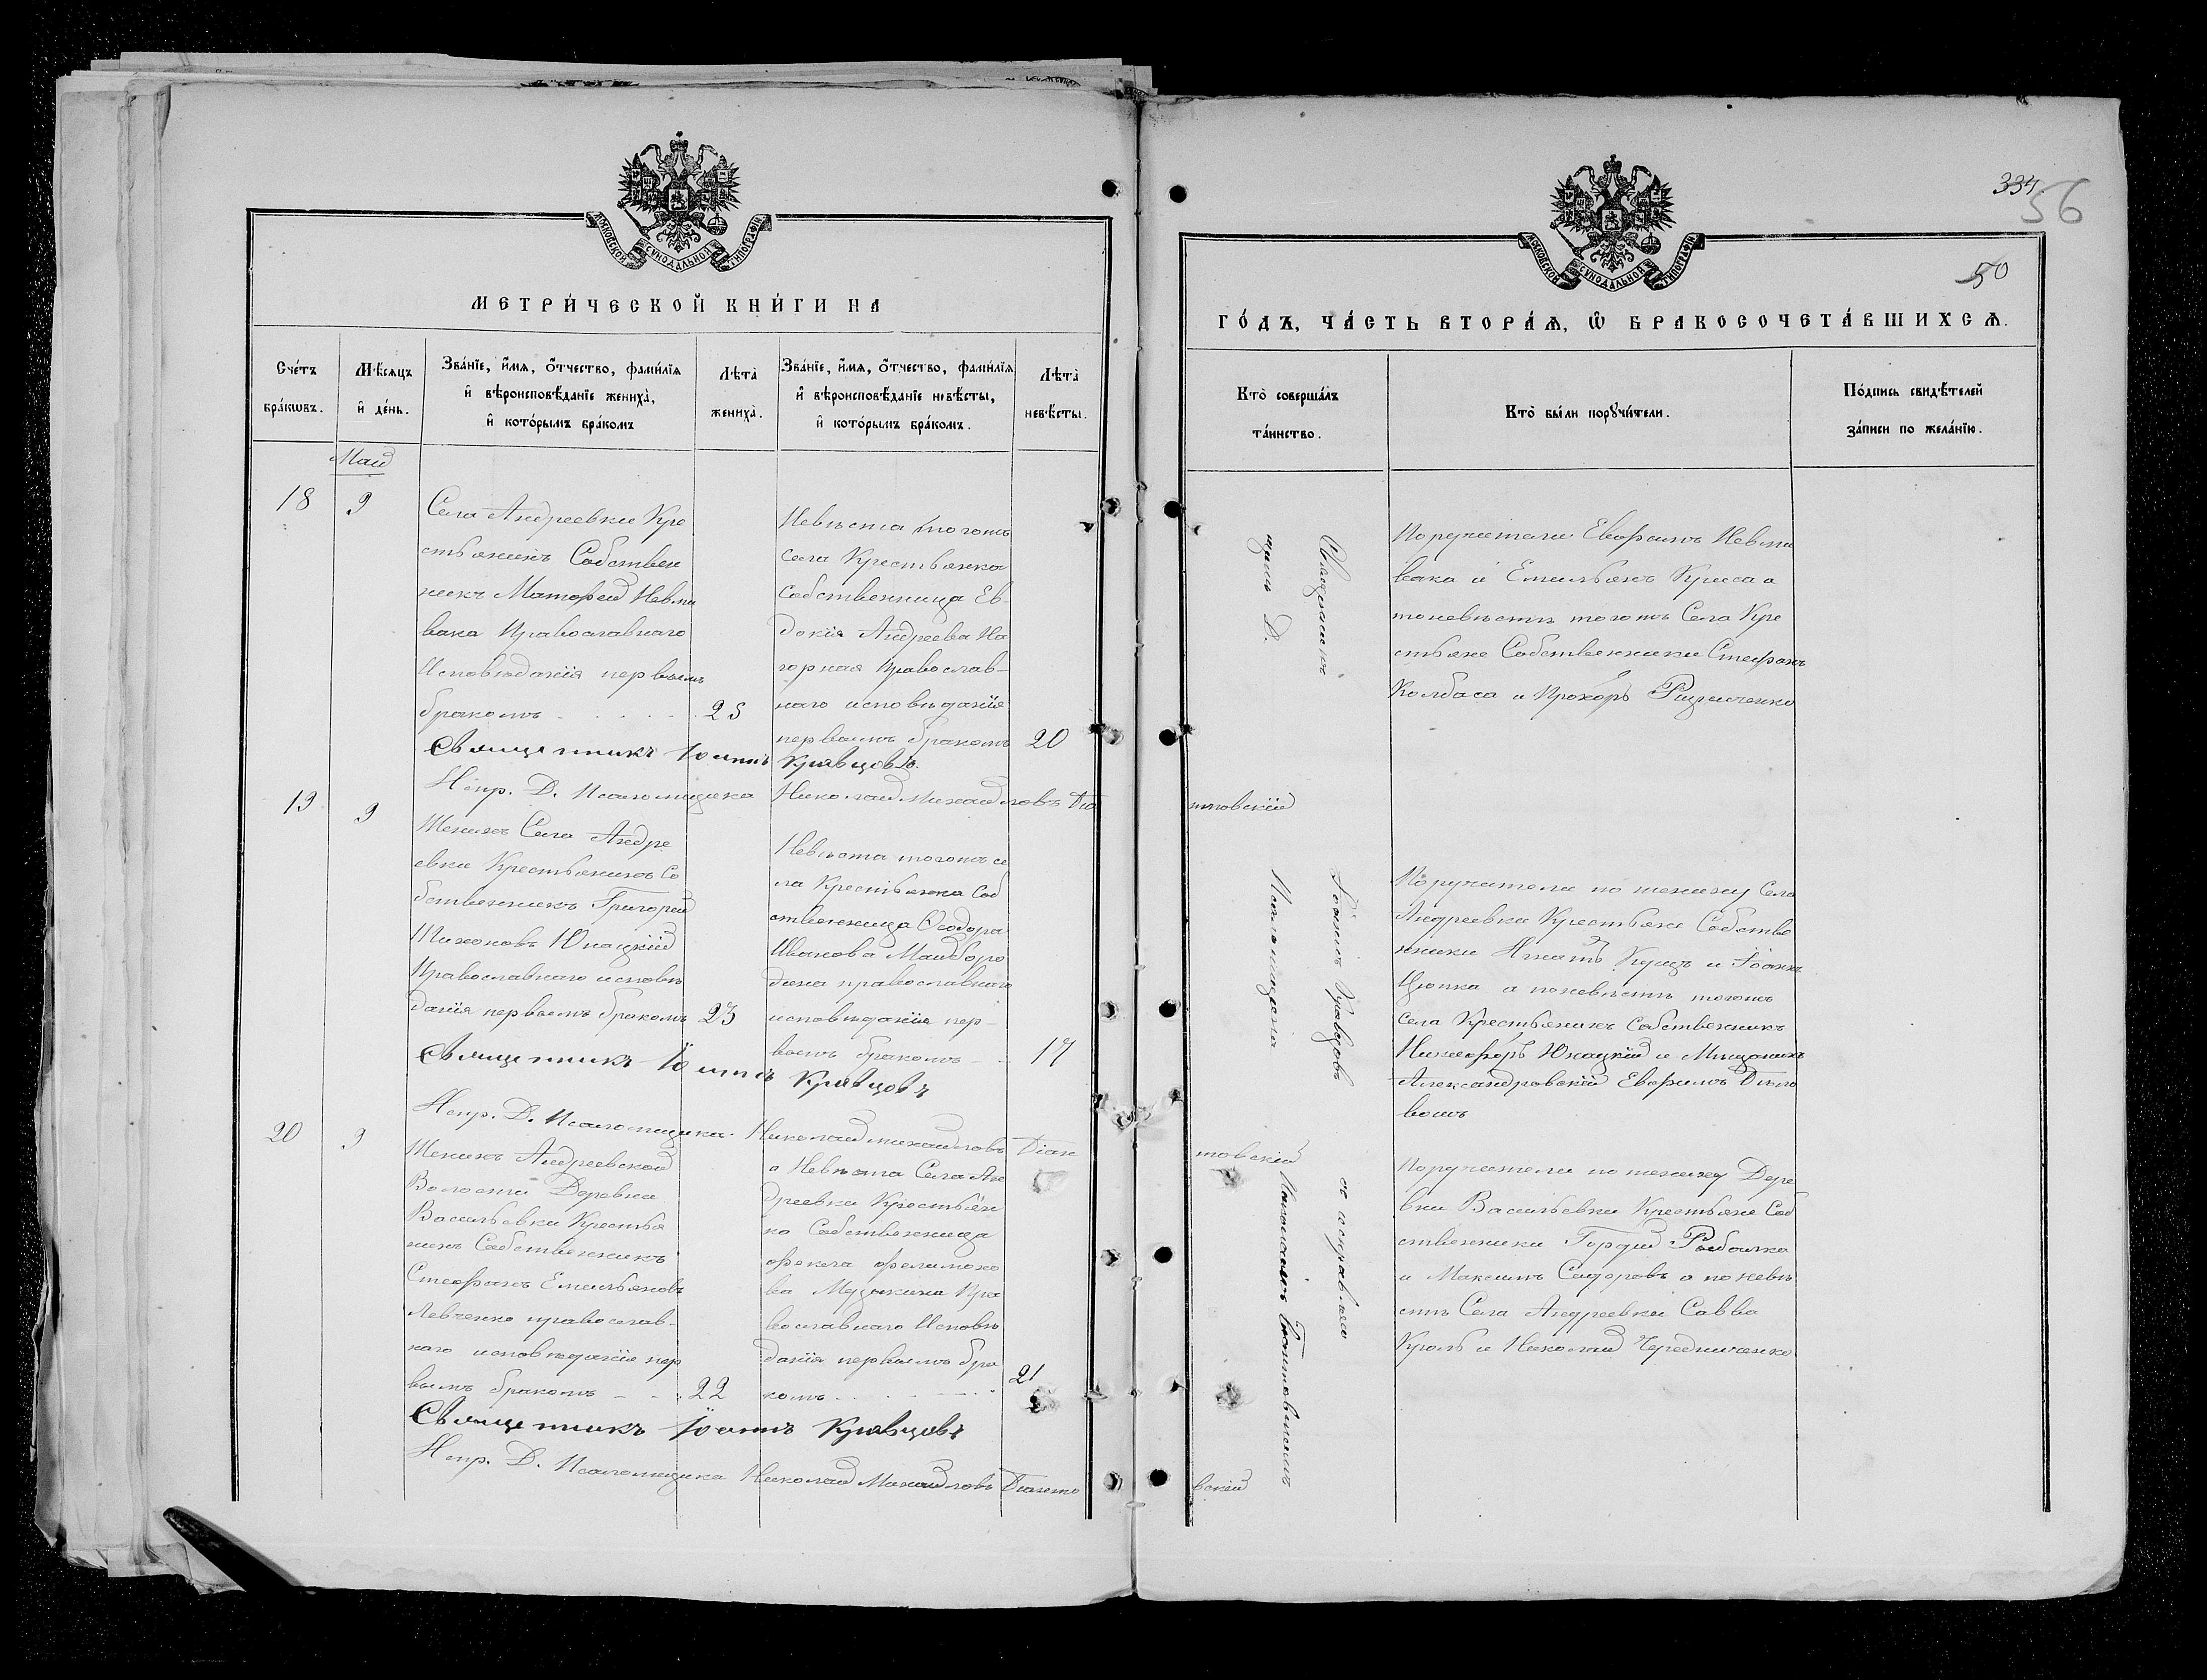 МОСКОВСКОЙ СѴНОДАЛЬНОЙ ТИПОГРАФІИ
МЕТРИ́ЧЕСКОЙ КНИ́ГИ НА
Сче́тъ бра́кѡвъ.
Мѣ́сяцъ и҆ де́нь.
Зва́нїе, и҆́мѧ, ѻ҆́тчество, фами́лїѧ
и҆ вѣроисповѣ́данїе жениха̀,
и҆ кото́рымъ бра́комъ
Лѣта̀ жениха̀.
Зва́нїе, и҆́мѧ, ѻ҆́тчество, фами́лїѧ
и҆ вѣроисповѣ́данїе невѣ́сты,
и҆ кото́рымъ бра́комъ.
Лѣта̀ невѣ́сты.
Май
18
9
Села Андреевки Кре
стьянинъ Собствен
никъ Матфей Невли
вака Православнаго
Исповѣданія первымъ
бракомъ
25
Невѣста тогожъ
села Крестьянка
Собственница Ев
докія Андреева На
горная православ-
наго исповѣданія
первымъ бракомъ
20
Священникъ Іоаннъ Кравцовъ.
Испр. Д. Псаломщика Николай Михайловъ Діа
19
9
Женихъ Села Андре
евки Крестьянинъ Со
бственникъ Григорій
Тихоновъ Юнацкій
Православнаго исповѣ
данія первымъ бракомъ
23
Невѣста тогожъ се
ла Крестьянка Соб
ственница Ѳеодора
Иванова Майборо
дина православнаго
исповѣданія пер-
вымъ бракомъ
17
Священникъ Іоаннъ Кравцовъ
Испр. Д. Псаломщика Николай михайловъ Діан
20
9
Женихъ Андреевской
Волости Деревни
Васильевки Крестья
нинъ Собственникъ
Стефанъ Емильяновъ
Левченко православ-
наго исповѣданія пер
вымъ бракомъ
22
а Невѣста Села Ан
дреевки Крестьян
ка Собственница
фекла филимоно
ва Музыкина Пра
вославнаго Исповѣ
данія первымъ бра
комъ
21
Священникъ Іоаннъ Кравцовъ
Испр. Д. Псаломщика Николай Михайловъ Діанто
334
56
50
МОСКОВСКОЙ СѴНОДАЛЬНОЙ ТИПОГРАФІИ
ГО́ДЪ, ЧА́СТЬ ВТОРА́Ѧ, Ѽ БРАКОСОЧЕТА́ВШИХСѦ.
Кто̀ соверша́лъ
та́инство.
Кто̀ бы́ли порꙋчи́тели.
По́дпись свидѣ́телей
за́писи по жела́нїю.
Священникъ
Іоаннъ Кравцовъ
съ исправляю
щимъ Д.
Псаломщика
Николаемъ Діантовскимъ
Поручители Евфимъ Невли
вака и Емильянъ Криса а
поневѣстѣ тогожъ Села Кре
стьяне Собственники Стефанъ
Колбаса и Прохоръ
нтовскій
Поручители по жениху Села
Андреевки Крестьяне Собстве
нники Игнатъ Куцъ и Іоаннъ
Цюпка а поневѣстѣ тогожъ
села Крестьянинъ Собственникъ
Никифоръ Юнацкій и Мѣщанинъ
Александровскій Евфимъ
товскій
Поручители по жениху Дере
вни Васильевки Крестьяне Соб
ственники Гордій Рыбалка
и Максимъ Сидоровъ а по невѣ
стѣ Села Андреевки Савва
Кроль и Николай Чередниченко
вскій